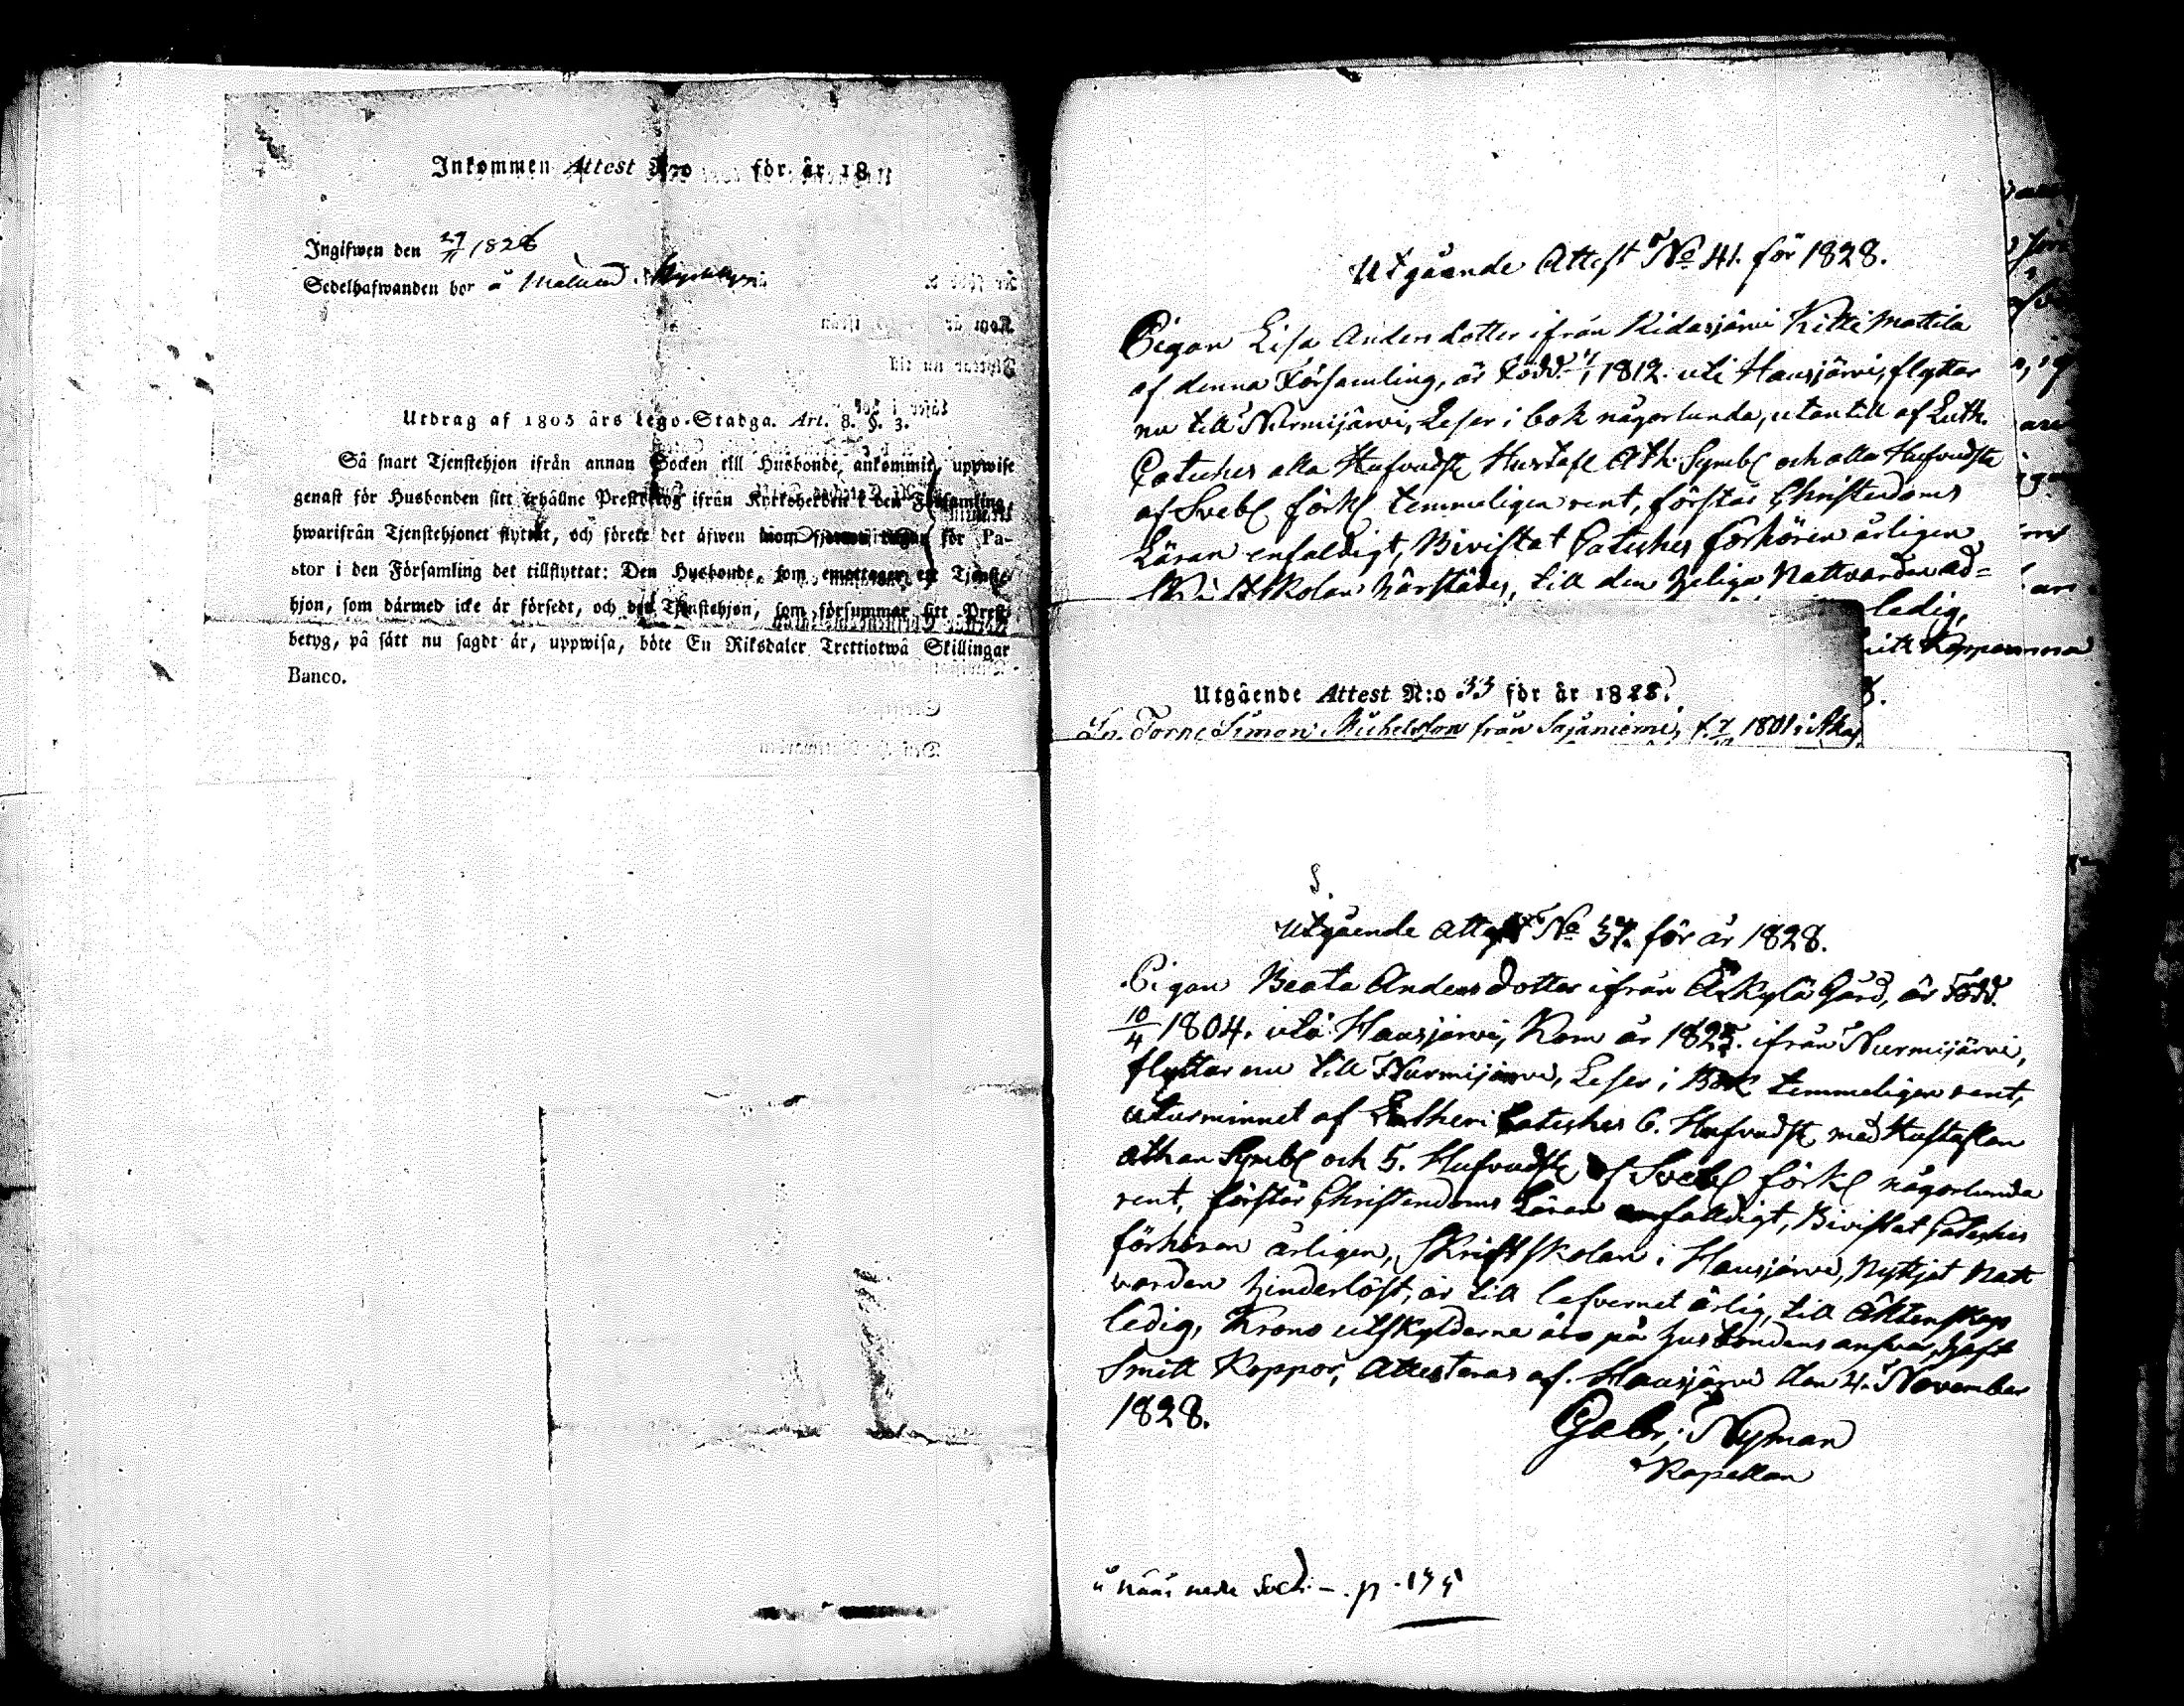 Inkommen Attest N:o för år 18
Ingifwen den 29/11 1828
Sedelhafwanden bor å
Utdrag af 1805 års Lego-Stadga. Art. 8. §. 3.
Så snart Tjenstehjon ifrån annan Socken till Husbonde, ankommit, uppwise
genast för Husbonden sitt erhållne Prestbetyg ifrån Kyrkoherden i den Församling,
hwarifrån Tjenstehjonet flyttat, och förete det äfwen inom fjorton dagar för Pa-
stor i den Församling det tillflyttat: Den Husbonde, som emottager ett Tjenste-
hjon, som därmed icke är försedt, och det Tjenstehjon, som försummar sitt Prest-
betyg, på sätt nu sagdt är, uppwisa, böte En Riksdaler Trettiotwå Skillingar
Banco.
Utgående Attest No 41. för 1828.
Pigan Lisa Andersdotter ifrån Ridasjärvi Kitti Mattila
af denna Församling, är Född 1812. uti Hausjärvi, flyttar
nu till Nurmijärvi, Leser i bok någorlunda, utantill af Luth.
Cateches alla Hufvudst Hustafl Ath. Symbl och alla Hufvudst
af Svebl förkl temmeligen rent, förstår Christendoms
Läran enfaldigt, Bivistat Cateches förhören årligen,
Skriftskolan härstädes, till den heliga Nattvarden ad=
ledig,
Kopporna
8.
Utgående Attest N:o 33 för år 1828.
Torp. Simon Michelsson från Sajaniemi, f. 1801 i
Utgående Attest No 37. för år 1828.
Pigan Beata Andersdotter ifrån Erkylä Gård, är Född.
10/4 1804. uti Hausjärvi, Kom år 1825. ifrån Nurmijärvi,
flyttar nu till Nurmijärvi, Leser i Bok temmeligen rent,
uturminnet af Lutheri Cateches 6. Hufvudst med Hustaflan
Athan Symbl och 5. Hufvudst af Svebl förkl någorlunda
rent, förstår Christendoms Läran enfalldigt, Bivistat Cateches
förhören årligen, Skriftskolan i Hausjärvi, Nyttjat Natt
varden hinderlöst, är till lefvernet ärlig, till Äktenskap
ledig, Krono utskylderne äro på husbondens ansvar, haft
Smitt Koppor, Attesteras af. Hausjärvi den 4. November
1828.
Gabr. Nyman
Kapellan